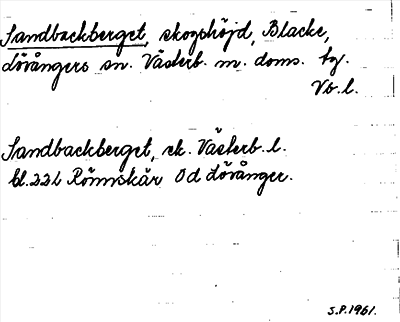 Sandbackberget, skogshöjd, Blacke,
Lövångers sn. Västerb. m. doms. tg.
Vb. l.
Sandbackberget, ek. Västerb. l.
bl. 22L Rönnskär Od Lövånger.
S.P. 1961.